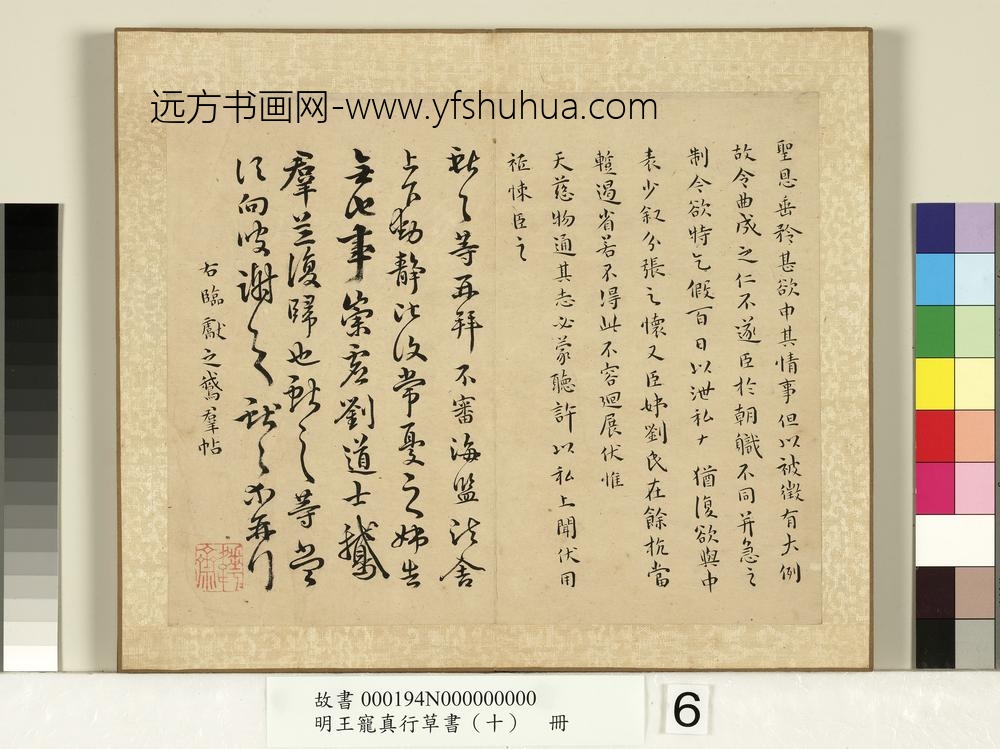 远方书画网-www.yfshuhua.com
聖恩垂矜甚欲申其情事但以被徵有大例
故令曲成之仁不遂臣於朝職不同并急之
制今欲特乞假百日以泄私 猶復欲與中
表少叙分張之懷又臣姊劉氏在餘杭當
過省若不得此不容迴展伏惟
天慈物通其志必蒙聽許以私上聞伏用
悚臣之
獻之等再拜不審海監諸舍
上下動靜比復常憂之姊告
無他事崇虛劉道士鵝
羣並復歸也獻之等當
須向彼謝之獻之等再行
右臨獻之鵞羣帖
故書 000194N000000000
明王寵真行草書（十） 冊
6